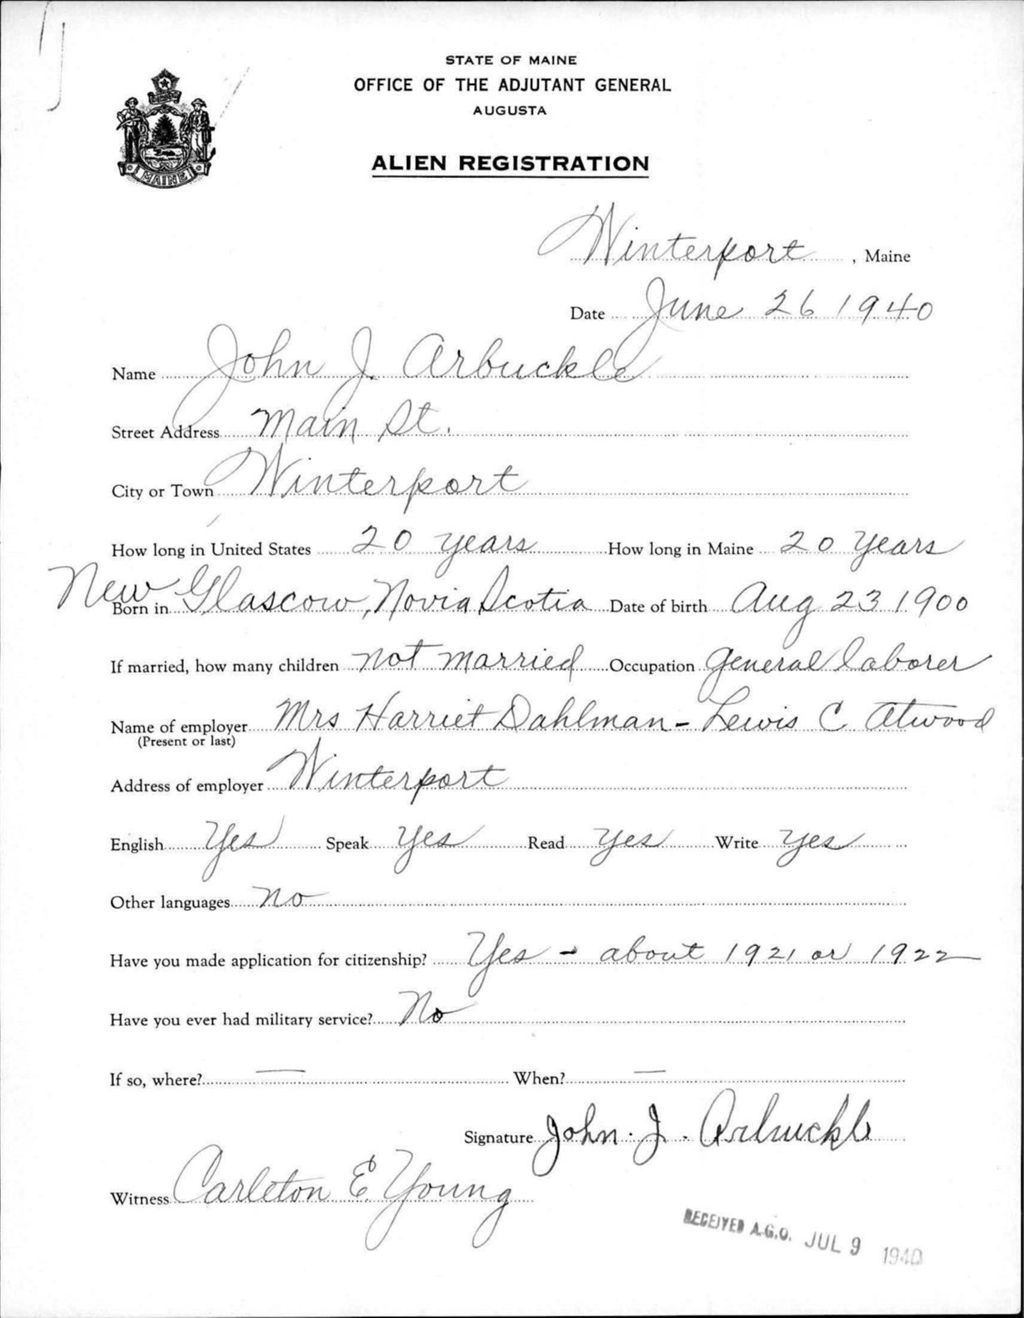 STATE OF MAINE
OFFICE OF THE ADJUTANT GENERAL
AUGUSTA
MAINE
ALIEN REGISTRATION
Winterport, Maine
Date June 26 1940
Name John J. Arbuckle
Street Address Main St.
City or Town Winterport
How long in United States 20 years How long in Maine 20 years
Born in New Glascow, Novia Scotia Date of birth Aug 23 1900
If married, how many children not married Occupation General laborer
Name of employer Mrs Harriet Dahlman - Lewis C Atwood
(Present or last)
Address of employer Winterport
English Yes Speak Yes Read Yes Write Yes
Other languages No
Have you made application for citizenship? Yes - about 1921 or 1922
Have you ever had military service? No
If so, where? — When? —
Signature John. J. Arbuckle
Witness Carleton E Young
RECEIVED A.G.O. JUL 9 1940